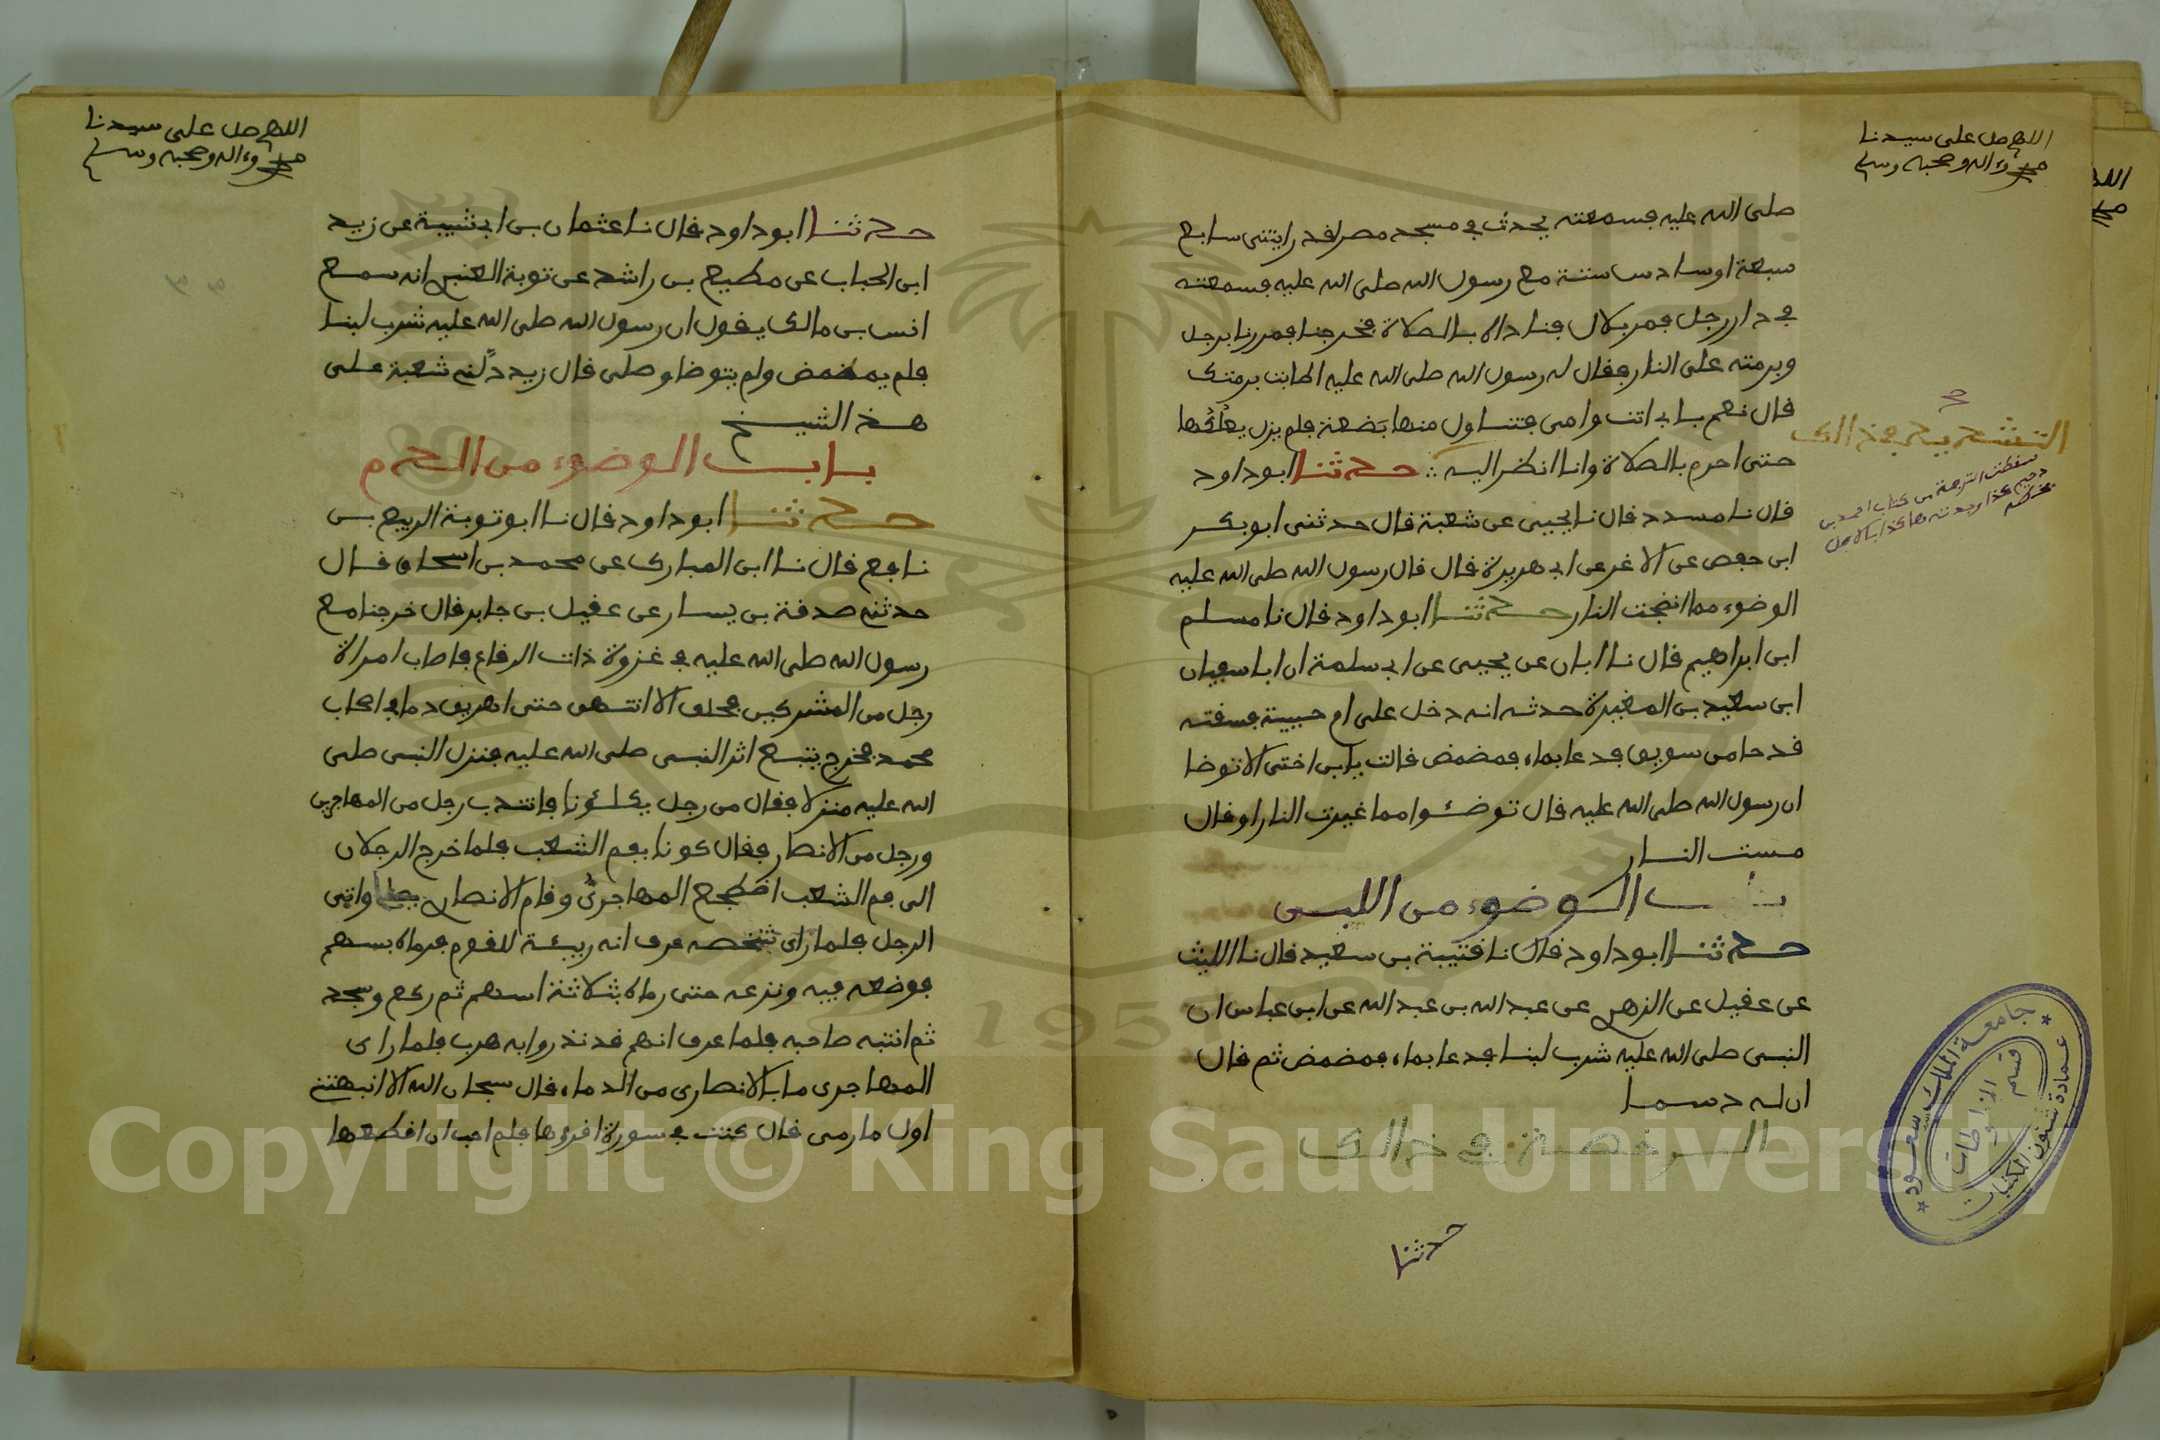 اللهم صل على سيدنا
محمد وءاله وصحبه وسلم
صلى الله عليه فسمعته يحدث في مسجد مصر لقد رايتنى سابع
سبعة او سادس ستة مع رسول الله صلى الله عليه فسمعته
في دار رجل فمر بلال فناداه بالصلاة فخرجنا فمررنا برجل
وبرمته على النار فقال له رسول الله صلى الله عليه اطابت برمتك
قال نعم بابي انت وامي فتناول منها بَضعة فلم يزل يعلُكُها
حتى احرم بالصلاة وانا انظر اليه ∴ حدثنا ابو داود
التشديد في ذالك
سقطت الترجمة من كتاب احمد بن
قال نا مسدد قال نا يحيى عن شعبة قال حدثنى ابو بكر
ابن حفص عن الاغر عن ابي هريرة قال قال رسول الله صلى الله عليه
الوضوء مما انضجت النار حدثنا ابو داود قال نا مسلم
ابن ابراهيم قال نا ابان عن يحيى عن ابي سلمة ان ابا سفيان
ابن سعيد بن المغيرة حدثه انه دخل على ام حبيبة فسقته
قدحا من سويق فدعا بماء فمضمض قالت يا بن اختى الا توضا
ان رسول الله صلى الله عليه قال توضئوا مما غيرت النار او قال
مست النار
باب الوضوء من اللبن
حدثنا ابو داود قال نا قتيبة بن سعيد قال نا الليث
عن عقيل عن الزهري عن عبد الله بن عبد الله عن ابن عباس ان
النبى صلى الله عليه شرب لبنا فدعا بماء فمضمض ثم قال
ان له دسما
الرخصة في ذالك
حدثنا
جامعة الملك سعود
عمادة شئون المكتبات
قسم المخطوطات
اللهم صل على سيدنا
محمد وءاله وصحبه وسلم
حدثنا ابو داود قال نا عثمان بن ابي شيبة عن زيد
ابن الحباب عن مطيع بن راشد عن توبة العنبري انه سمع
انس بن مالك يقول ان رسول الله صلى الله عليه شرب لبنا
فلم يمضمض ولم يتوضا وصلى قال زيد دلَّني شعبة على
هذا الشيخ
باب الوضوء من الدم
حدثنا ابو داود قال نا ابو توبة الربيع بن
نافع قال نا ابن المبارك عن محمد بن اسحاق قال
حدثني صدقة بن يسار عن عقيل بن جابر قال خرجنا مع
رسول الله صلى الله عليه في غزوة ذات الرقاع فاصاب امراة
رجل من المشركين فحلف الا انتهى حتى اهريق دما في اصحاب
محمد فخرج يتبع اثر النبى صلى الله عليه فنزل النبى صلى
الله عليه منزلا فقال من رجل يكلئونا فانتدب رجل من المهاجرين
ورجل من الانصار فقال كونا بفم الشعب فلما خرج الرجلان
الى فم الشعب اضطجع المهاجرىُّ وقام الانصاري يصلي واتى
الرجل فلما راى شخصه عرف انه ربيئة للقوم فرماه بسهم
فوضعه فيه ونزعه حتى رماه بثلاثة اسهم ثم ركع وسجد
ثم انتبه صاحبه فلما عرف انهم قد نذروا به هرب فلما راى
المهاجرى ما بالانصارى من الدماء قال سبحان الله الا انبهتني
اول ما رمى قال كنت في سورة اقرءها فلم احب ان اقطعها
Copyright © King Saud University
195